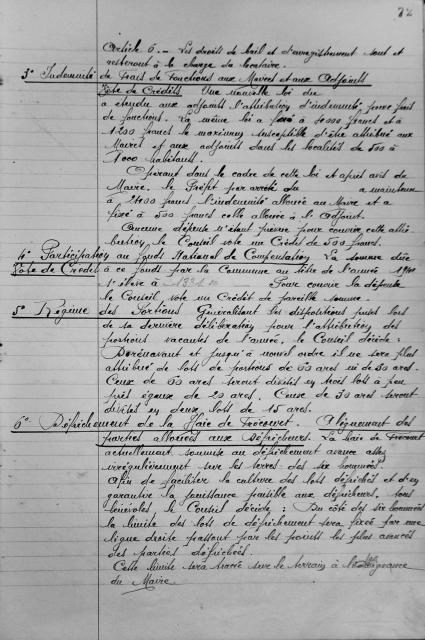 72
Article 6. - Les droits de bail et d'enregistrement sont et
resteront à la charge du locataire.
3° Indemnité de Frais de Fonctions aux Maires et aux Adjoints
Vote de Crédits Une nouvelle loi du
a étendu aux adjoints l'attribution d'indemnité pour frais
de fonctions. La même loi a fixé à 4000 francs et à
1200 francs le maximum susceptible d'être attribué aux
Maires et aux adjoints dans les localités de 500 à
1000 habitants.
Opérant dans le cadre de cette loi et après avis du
Maire, le Préfet par arrêté du a maintenu
à 2400 francs l'indemnité allouée au Maire et a
fixé à 500 francs celle allouée à l'Adjoint.
Aucune dépense n'étant prévue pour couvrir cette attri-
bution, le Conseil vote un Crédit de 500 francs.
4° Participation au Fonds National de Compensation La somme due
Vote de Crédit à ce fonds par la Commune au titre de l'année
s'élève à Pour couvrir la dépense
le Conseil vote un Crédit de pareille somme.
5° Régime des Portions Généralisant les dispositions prises lors
de sa dernière délibération pour l'attribution des
portions vacantes de l'année, le Conseil décide :
Dorénavant et jusqu'à nouvel ordre il ne sera plus
attribué de lots de portions de ares ni de ares.
Ceux de ares seront divisés en trois lots à peu
près égaux de ares. Ceux de ares seront
divisés en deux lots de 15 ares.
6° Défrichement de la Haie de Frocourt. Alignement des
parties allouées aux Défricheurs. La haie de Frocourt
actuellement soumise au défrichement avance assez
irrégulièrement sur les terres des six journées.
Afin de faciliter la culture des lots défrichés et d'en
garantir la jouissance paisible aux défricheurs, tous
bénévoles, le Conseil décide : Du côté des six journées
la limite des lots de défrichement sera fixée par une
ligne droite passant par les points les plus avancés
des parties défrichées.
Cette limite sera tracée sur le terrain à la diligence
du Maire.